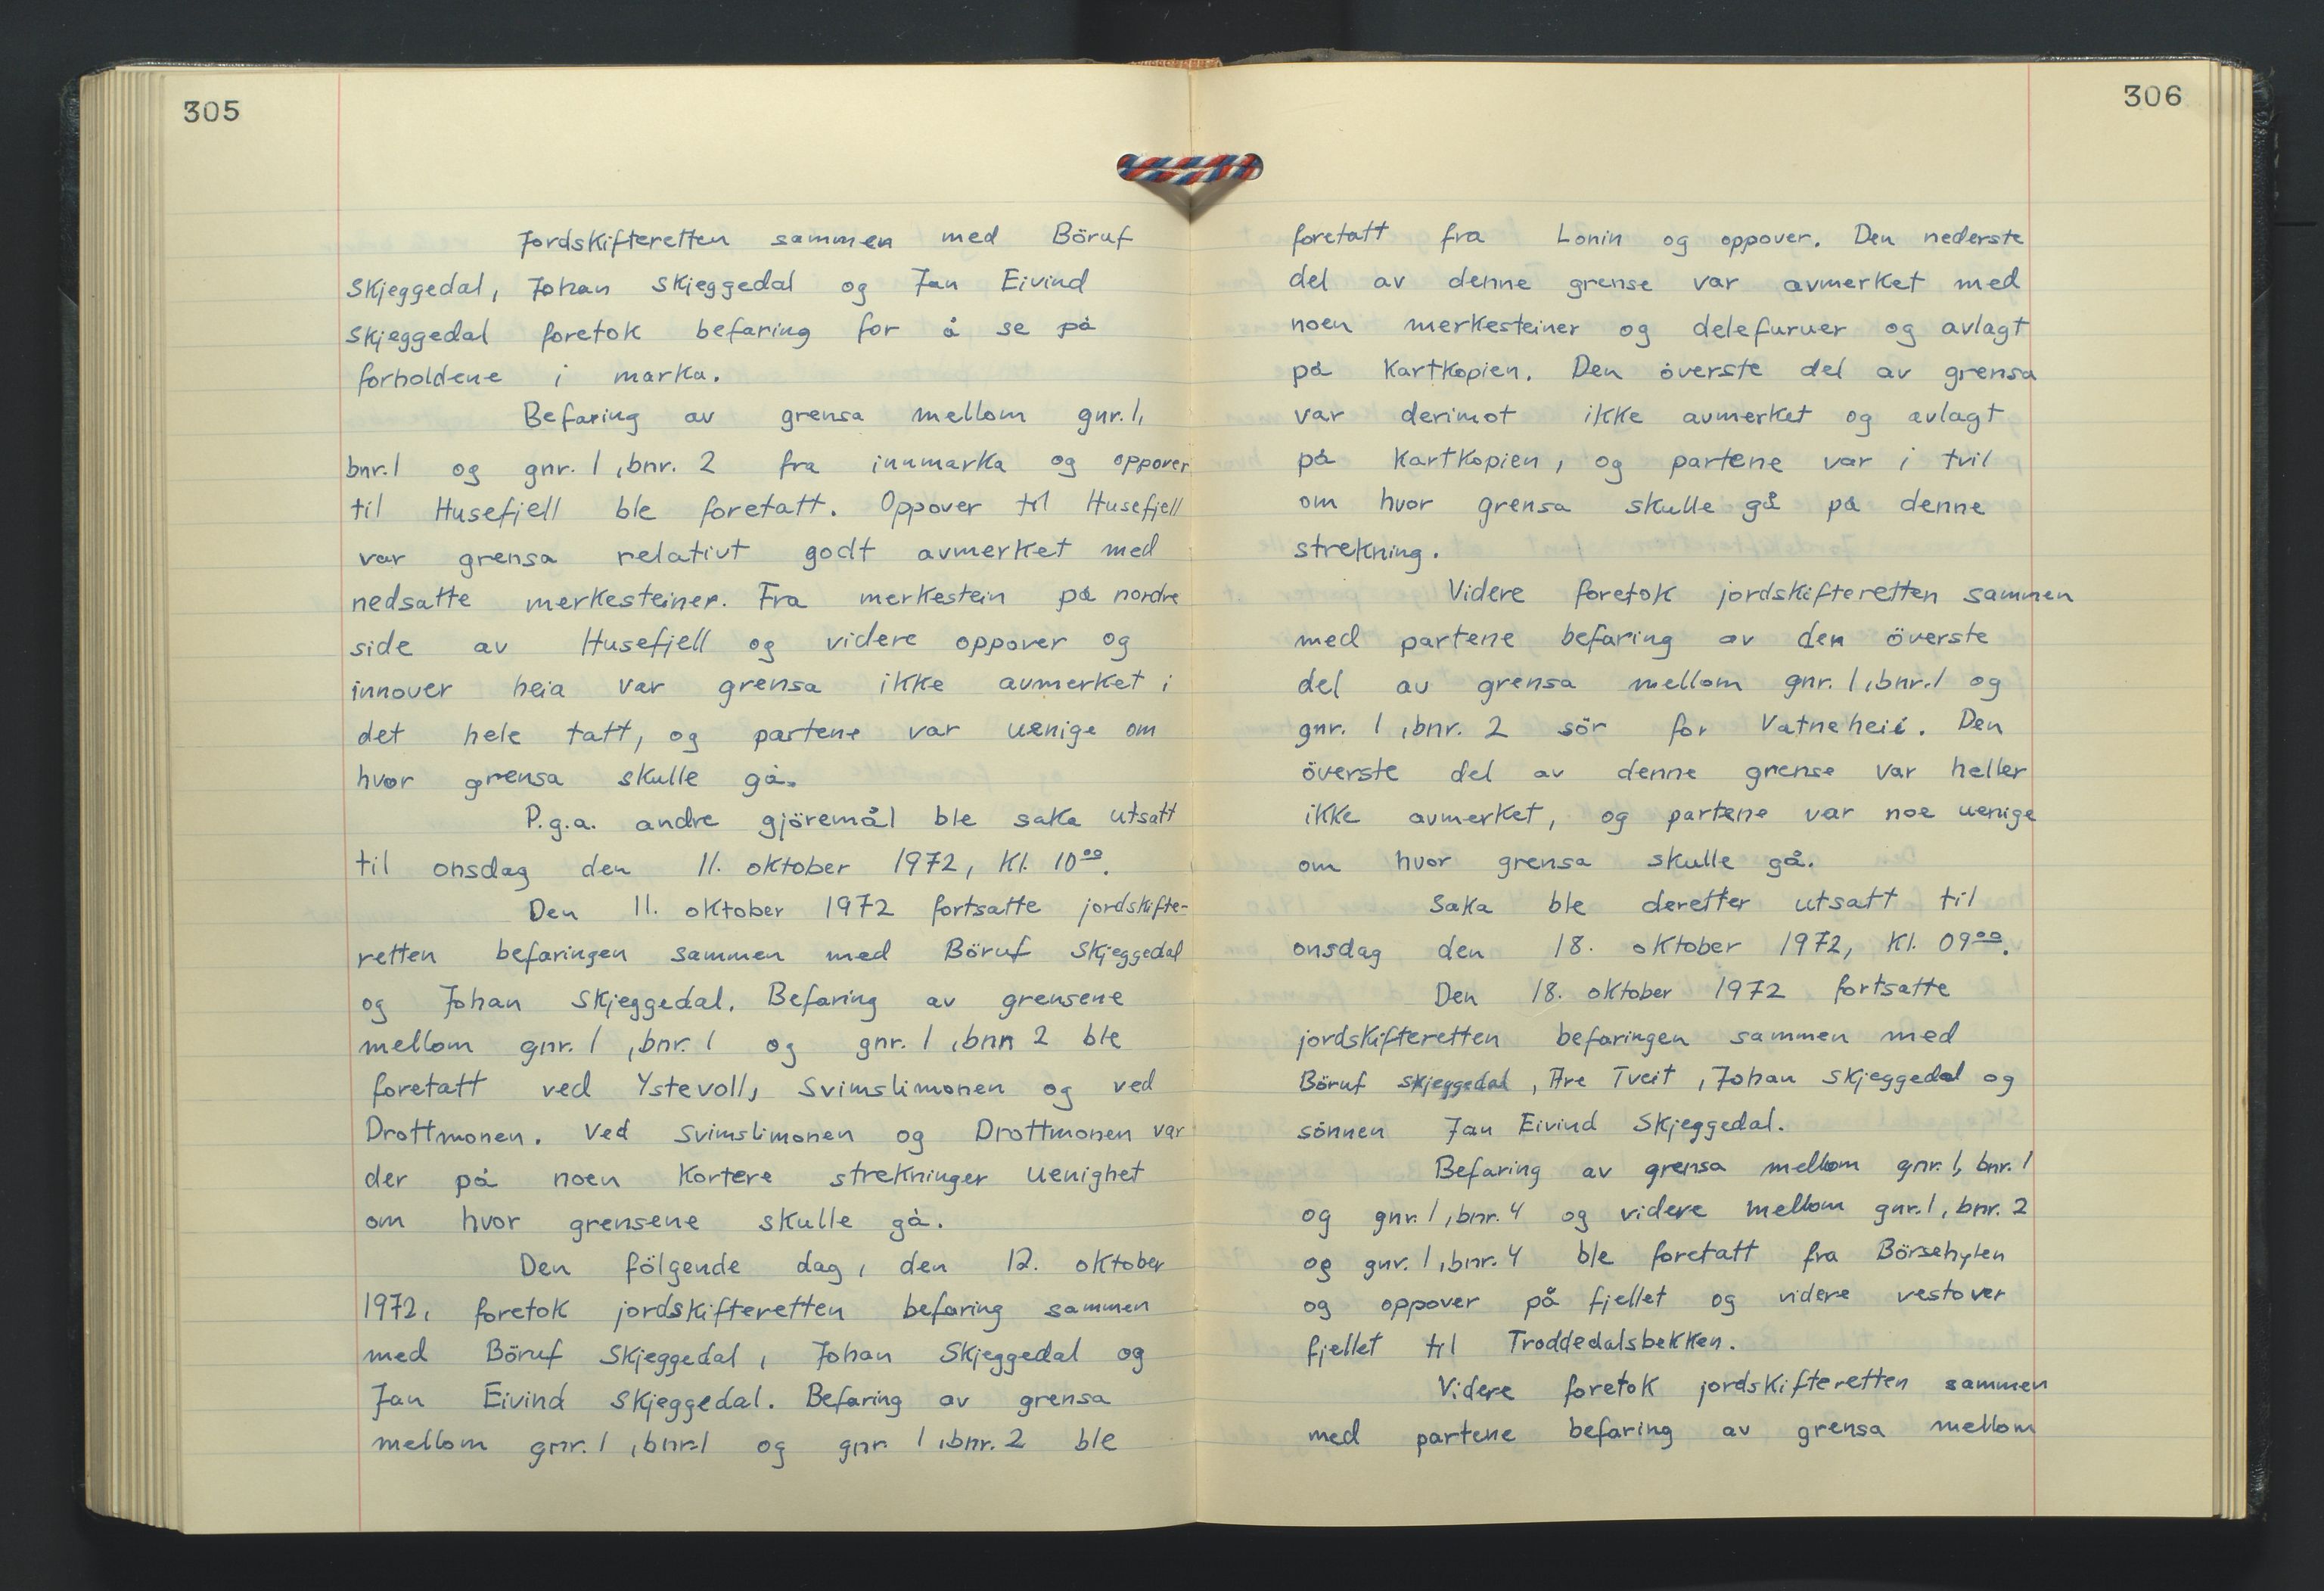 305
Jordskifteretten sammen med Böruf
Skjeggedal, Johan Skjeggedal og Jan Eivind
Skjeggedal foretok befaring for å se på
forholdene i marka.
Befaring av grensa mellom gnr. 1,
bnr. 1 og gnr. 1, bnr. 2 fra innmarka og oppover
til Husefjell ble foretatt. Oppover til Husefjell
var grensa relativt godt avmerket med
nedsatte merkesteiner. Fra merkestein på nordre
side av Husefjell og videre oppover og
innover heia var grensa ikke avmerket i
det hele tatt, og partene var uenige om
hvor grensa skulle gå.
P.g.a. andre gjöremål ble saka utsatt
til onsdag den 11. oktober 1972, kl. 10⁰⁰.
Den 11. oktober 1972 fortsatte jordskifte-
retten befaringen sammen med Böruf Skjeggedal
og Johan Skjeggedal. Befaring av grensene
mellom gnr. 1, bnr. 1 og gnr. 1, bnr 2 ble
foretatt ved Ystevoll, Svimslimonen og ved
Drottmonen. Ved Svimslimonen og Drottmonen var
der på noen kortere strekninger uenighet
om hvor grensene skulle gå.
Den fölgende dag, den 12. oktober
1972, foretok jordskifteretten befaring sammen
med Böruf Skjeggedal, Johan Skjeggedal og
Jan Eivind Skjeggedal. Befaring av grensa
mellom gnr. 1, bnr. 1 og gnr 1, bnr. 2 ble
306
foretatt fra Lonin og oppover. Den nederste
del av denne grense var avmerket med
noen merkesteiner og delefuruer og avlagt
på kartkopien. Den överste del av grensa
var derimot ikke avmerket og avlagt
på kartkopien, og partene var i tvil
om hvor grensa skulle gå på denne
strekning.
Videre foretok jordskifteretten sammen
med partene befaring av den överste
del av grensa mellom gnr. 1, bnr. 1 og
gnr. 1, bnr. 2 sör for Vatneheii. Den
överste del av denne grense var heller
ikke avmerket, og partene var noe uenige
om hvor grensa skulle gå.
Saka ble deretter utsatt til
onsdag den 18. oktober 1972, kl. 09⁰⁰.
Den 18. oktober 1972 fortsatte
jordskifteretten befaringen sammen med
Böruf Skjeggedal, Are Tveit, Johan Skjeggedal og
sönnen Jan Eivind Skjeggedal.
Befaring av grensa mellom gnr. 1, bnr. 1
og gnr. 1, bnr. 4 og videre mellom gnr. 1, bnr. 2
og gnr. 1, bnr. 4 ble foretatt fra Börsehylen
og oppover på fjellet og videre vestover
fjellet til Troddedalsbekken.
Videre foretok jordskifteretten sammen
med partene befaring av grensa mellom